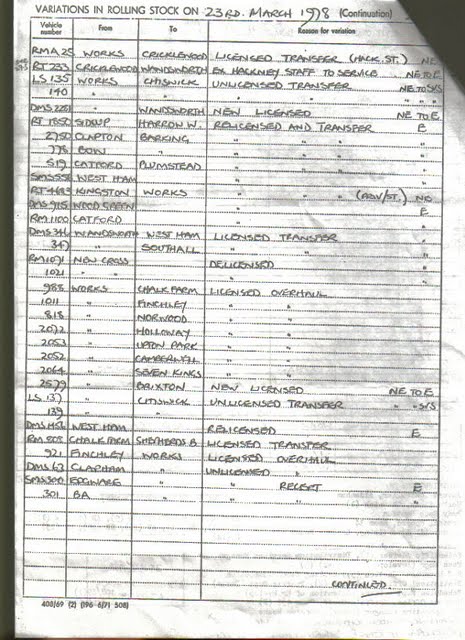 VARIATIONS IN ROLLING STOCK ON 23RD. MARCH 1978 (Continuation)
Vehicle number From To Reason for variation
RMA 25 WORKS CRICKLEWOOD LICENSED TRANSFER (HACK. ST.) NE
RT 233 CRICKLEWOOD WANDSWORTH EX HACKNEY STAFF TO SERVICE NE TO E
LS 135 WORKS CHISWICK UNLICENSED TRANSFER NE TO S/S
140 " " " " "
WANDSWORTH NEW LICENSED NE TO E
RT SIDCUP HARROW W. RELICENSED AND TRANSFER E
2750 CLAPTON BARKING " " "
778 BOW " " " "
519 CATFORD PLUMSTEAD " " "
WEST HAM " " "
KINGSTON WORKS " " (ADV/ST.) NE
DMS WOOD GREEN " " E
RM 1100 CATFORD " " "
DMS WANDSWORTH WEST HAM LICENSED TRANSFER "
347 " SOUTHALL " " "
RM 1071 NEW CROSS DELICENSED "
1021 " " " "
988 WORKS CHALK FARM LICENSED OVERHAUL "
1011 " FINCHLEY " " "
818 " NORWOOD " " "
2072 " HOLLOWAY " " "
2053 " UPTON PARK " " "
2052 " CAMBERWELL " " "
2064 " SEVEN KINGS " " "
2579 " BRIXTON NEW LICENSED NE TO E
LS 137 " CHISWICK UNLICENSED TRANSFER " " S/S
139 " " " " "
DMS WEST HAM RELICENSED E
RM 505 CHALK FARM SHEPHERDS B. LICENSED TRANSFER "
921 FINCHLEY WORKS LICENSED OVERHAUL "
DMS 63 CLAPHAM " UNLICENSED " "
EDGWARE " " RECERT E
301 BA " " " "
CONTINUED
408/69 (2) (196 6/71 508)